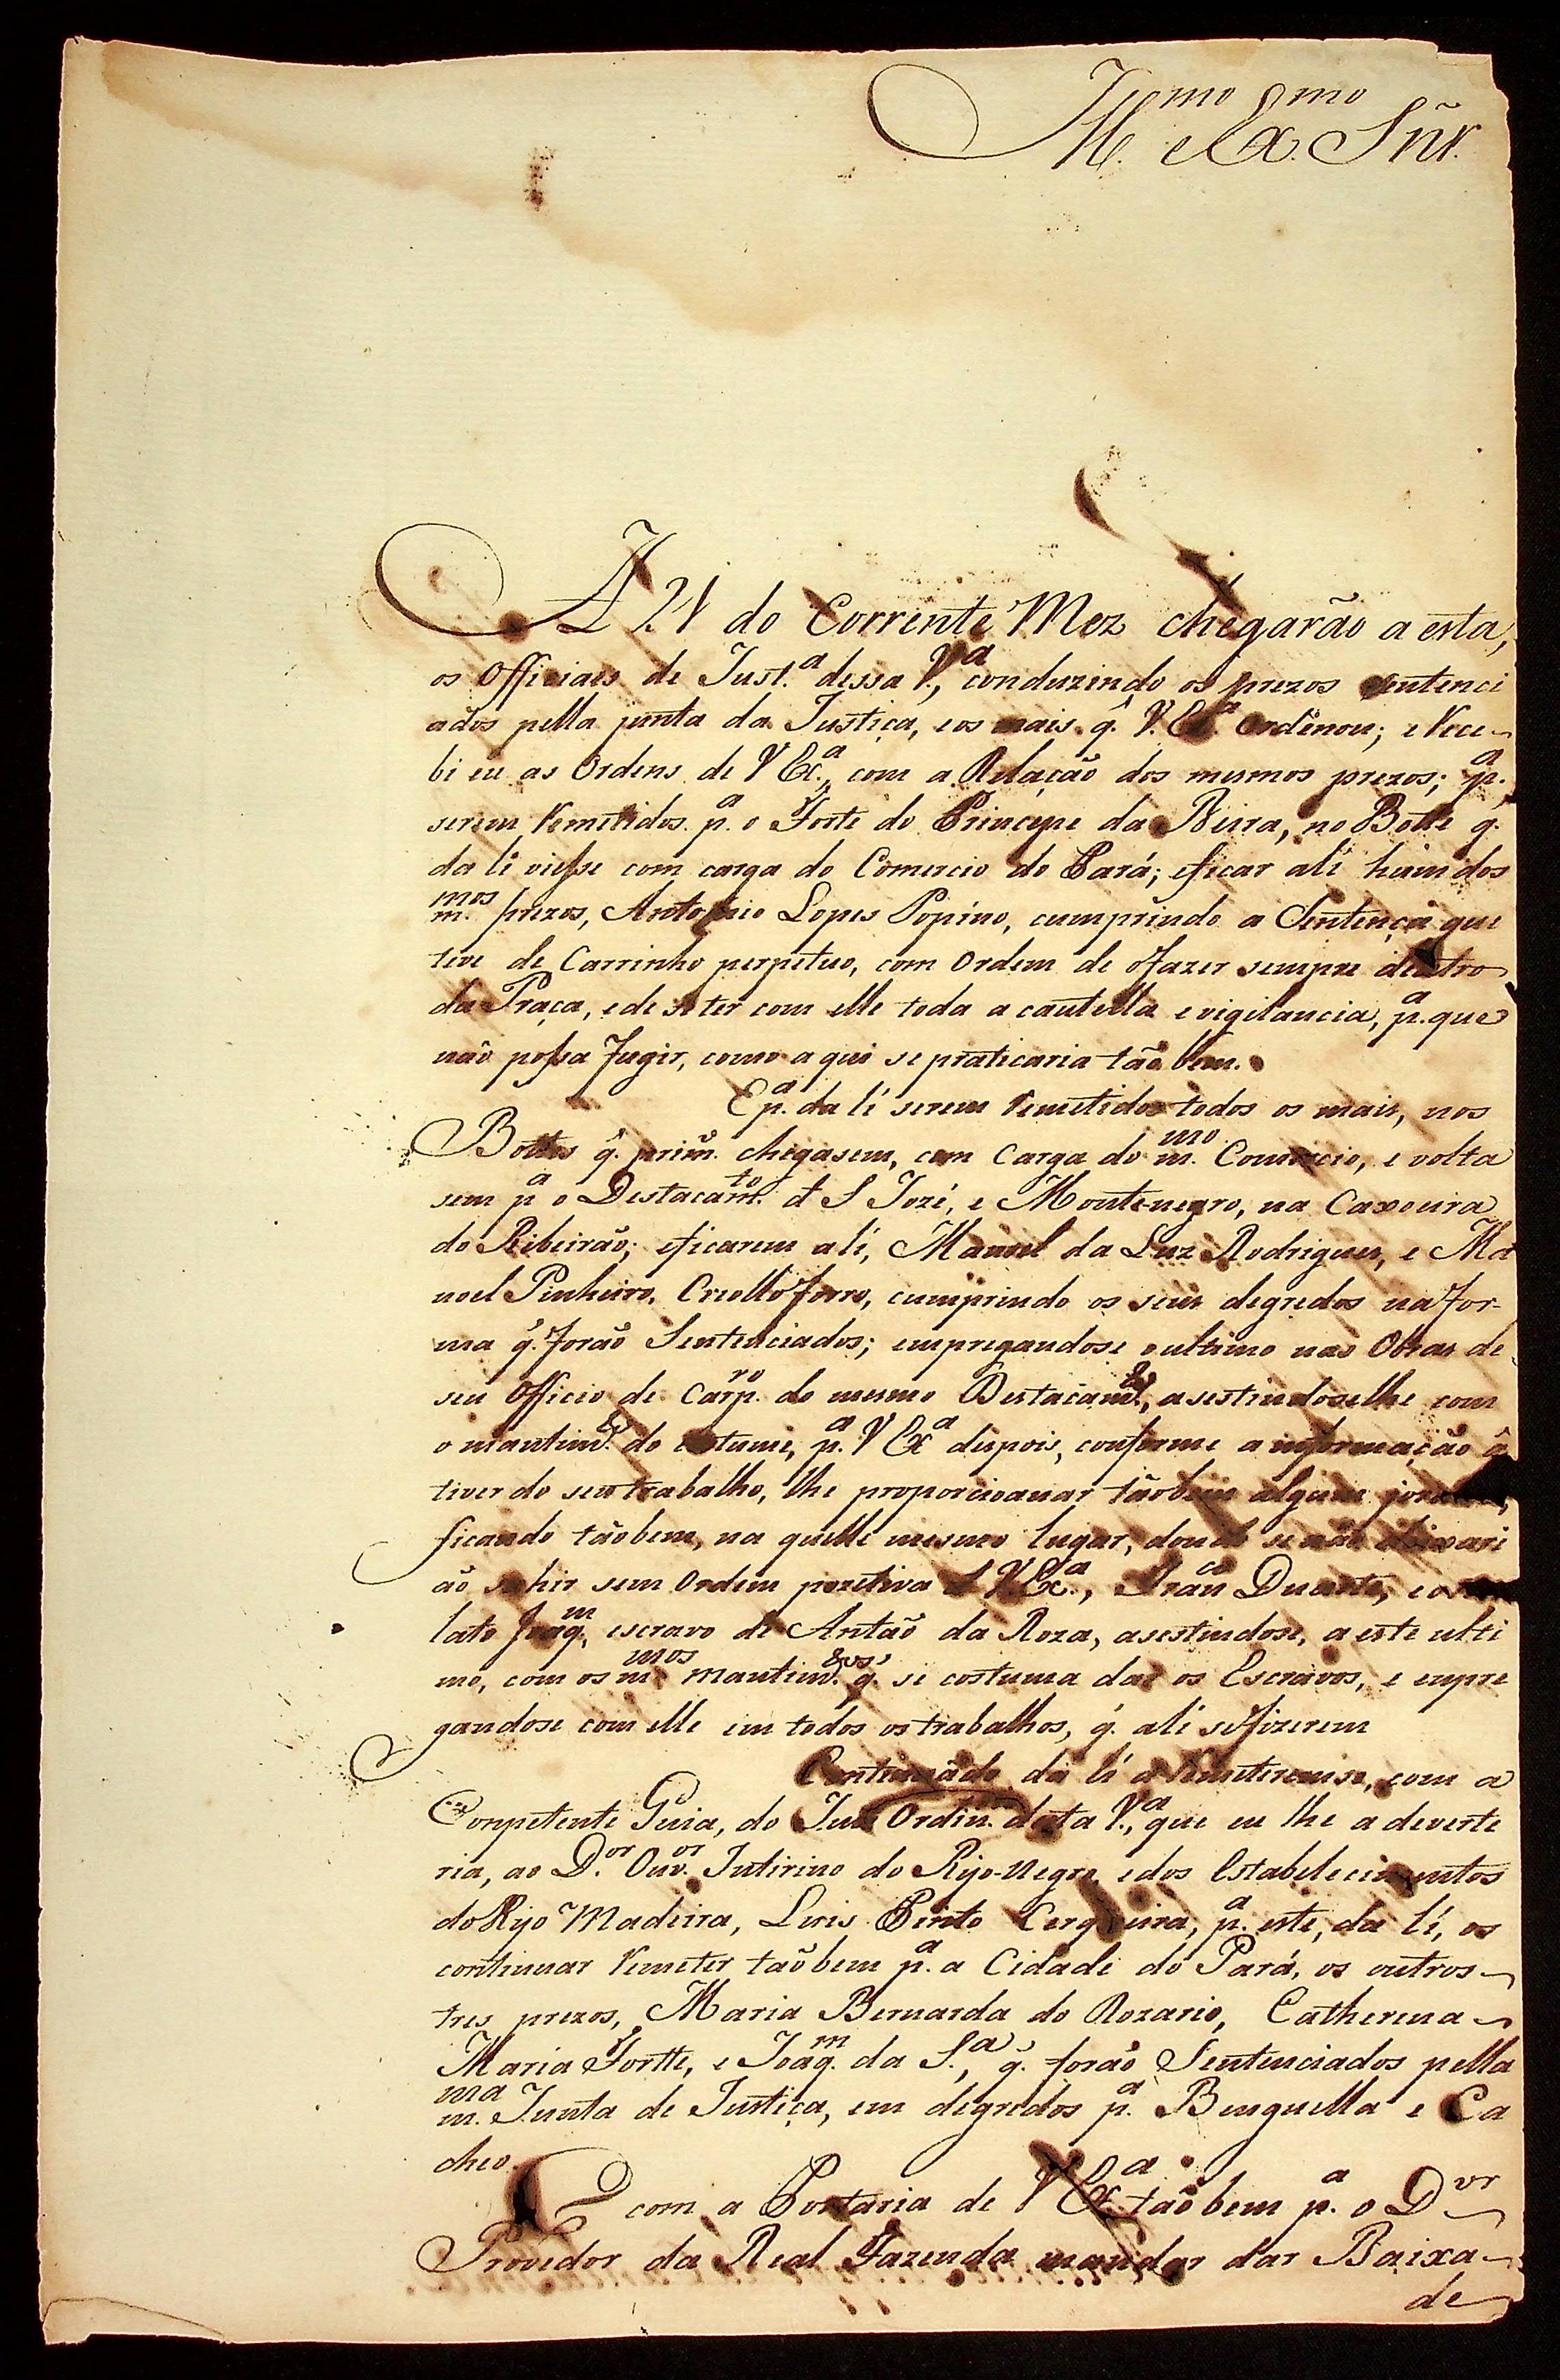 Ill.mo e Ex.mo Sñr.
A 21 do Corrente Mez chegarão a esta,
os Officiaes de Just.a dessa V.a, conduzindo os prezos sentenci
ados pella junta da Justiça, e os mais q̃. V. Ex.a ordenou; e Rece-
bi eu as Ordens de V Ex.a, com a Relação dos mesmos prezos; p.a
serem Remetidos p.a o Forte do Principe da Beira, no Botte q.
da li viesse com carga do Comercio do Pará; eficar ali hum dos
m.mos prezos, Antonio Lopes Popino, cumprindo a Sentença que
teve de Carrinho perpetuo, com Ordem de ofazer sempre dentro
da Praça, ede se ter com elle toda a cautella e vigilancia, p.a que
não possa fugir, como a qui se praticaria tão bem.
E p.a da li serem Remetidos todos os mais, nos
Bottes q̃. prim.o chegasem, com Carga do m.mo Comercio, e volta
sem p.a o Destacam.to d S Jozé, e Montenegro, na Caxoeira
do Ribeirão; eficarem ali, Manoel da Luz Rodrigues, e Ma
noel Pinheiro, Criollo forro, cumprindo os seus degredos na for-
ma q̃. forão Sentenciados; empregandose o ultimo nas Obras de
seu Officio de Carp.ro do mesmo Destacam.to, asestindoselhe com
o mantim.to do costume, p.a V Ex.a dispois, conforme a informação q̃
tiver do seu trabalho, lhe proporcioanar tãobem algum
ficando tãobem, na quelle mesmo lugar, donde se não deixari
ão sahir sem Ordem pozetiva d V Ex.a, Fran.co Duarte, e o
lato Joaq.m, escravo de Antão da Roza, asestindose, a este ulti
mo, com os m.mos mantim.tos q̃. se costuma dar os Escravos, e empre
gandose com elle em todos os trabalhos, q̃. ali sefizerem
Continuãdo da li a Remeteremse, com a
Competente Guia, do Juis Ordin. desta V.a, que eu lhe a deverte
ria, ao D.or Ouv.or Intirino do Rijo-Negro, edos Estabelecimentos
do Rijo Madeira, Luis Pinto Cerqueira, p.a este, da li, os
continuar Remeter taõbem p.a a Cidade do Pará, os outros
tres prezos, Maria Bernarda do Rozario, Catherena
Maria Fortte, e Joaq.m da S.a, q̃. forão Sentenciados pella
m.ma Junta de Justiça, em degredos p.a Benguella e Ca
cheo.
E com a Portaria de V Ex.a taõ bem p.a o D.or
Provedor da Real Fazenda mandar dar Baixa
de